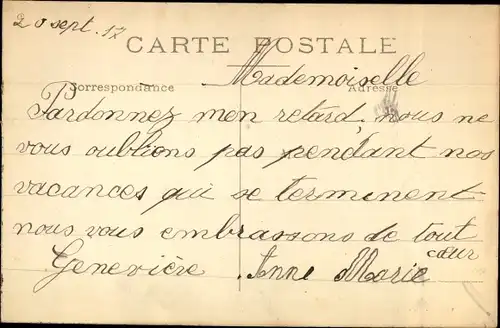 20 sept. 17
CARTE POSTALE
Mademoiselle
Correspondance
Adresse
Pardonnez mon retard, nous ne
vous oublions pas pendant nos
vacances qui se terminent
nous vous embrassons de tout
cœur
Geneviève Anne Marie